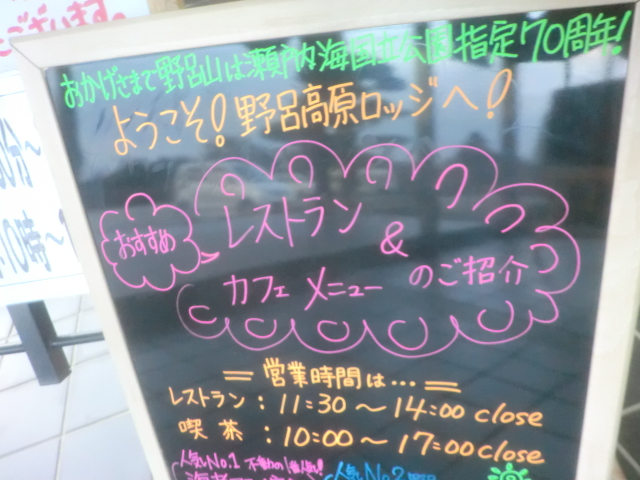 ございます。
おかげさまで野呂山は瀬戸内海国立公園指定70周年!
ようこそ!野呂高原ロッジへ!
おすすめ
レストラン
&
カフェ メニュー のご紹介
営業時間は…
レストラン:11:30〜14:00 close
喫茶:10:00〜17:00 close
人気No.1 不動の1番人気!
人気No.2
0分〜
10時〜